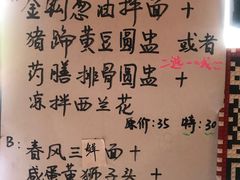 金瓢葱油拌面 +
猪蹄黄豆圆盅 或者
二选一
药膳排骨圆盅 +
凉拌西兰花
原价:35 特:30
B:
春风三鲜面 +
咸蛋黄狮子头 +